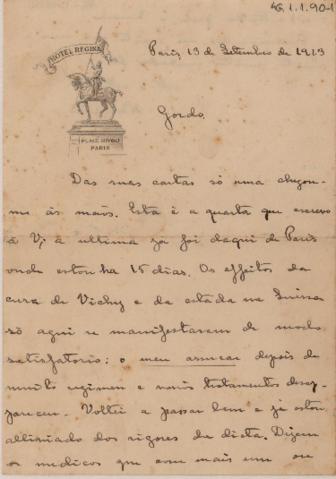 46.1.1.90-1
HOTEL REGINA
PLACE RIVOLI
PARIS
Paris, 13 de Setembro de 1913
Gordo,
Das suas cartas só uma chegou-
me ás mãos. Esta é a quarta que escrevo
á V; a ultima já foi daqui de Paris
onde estou ha 15 dias. Os effeitos da
cura de Vichy e da estada na Suissa
só aqui se manifestaram de modo
satisfatorio: o meu assucar depois de
muito regimen e varios tratamentos desap-
pareceu. Voltei a passar bem e já estou
alliviado dos rigores da dieta. Dizem
os medicos que com mais um ou